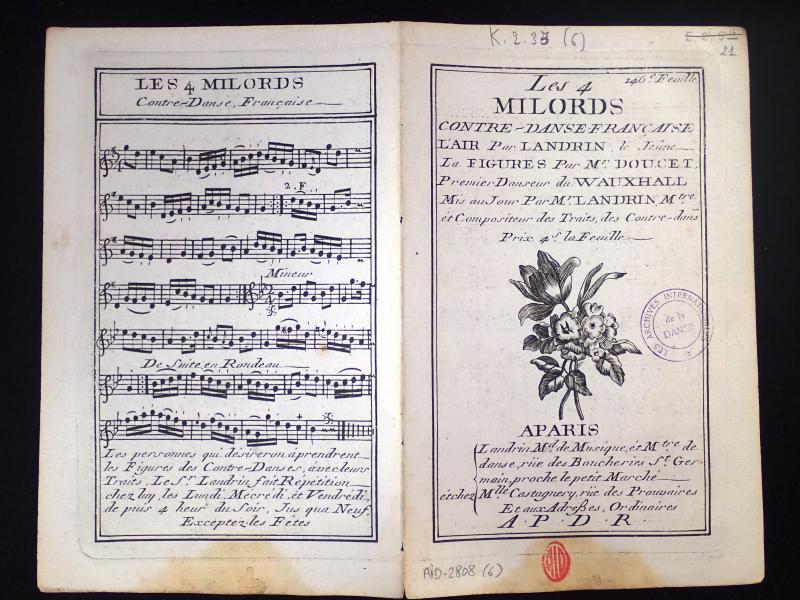 LES 4 MILORDS
Contre-Danse, Française
2. F
Mineur
De Suite en Rondeau
Les personnes qui désireron áprendrent
les Figures des Contre-Danses, avec leurs
Traits, Le Sr. Landrin fait Répétition
chez luy, les Lundi, Mecredi, et Vendredi,
de puis 4 heur du Soir, Jus qua Neuf,
Exceptez-les Fêtes
K.2.33 (6)
21
146e. Feuille
Les 4
MILORDS
CONTRE-DANSE FRANÇAISE
L'AIR Par LANDRIN, le Jeûne
La FIGURES Par Mr. DOUCET,
Premier Danseur du WAUXHALL
Mis au Jour Par Mr. LANDRIN, Mtre
ét Compositeur des Traits, des Contre-dans
Prix 4s. la Feuille
LES ARCHIVES INTERNATIONALES
de la
DANSE
APARIS
Landrin Md. de Musique, ét Mtre de
danse, rüe des Boucheries St. Ger-
main, proche le petit Marché
ét chez Mlle Castagnery, rüe des Prouvaires
Et aux Adreßes, Ordinaires
A.P.D.R.
AID-2808 (6)